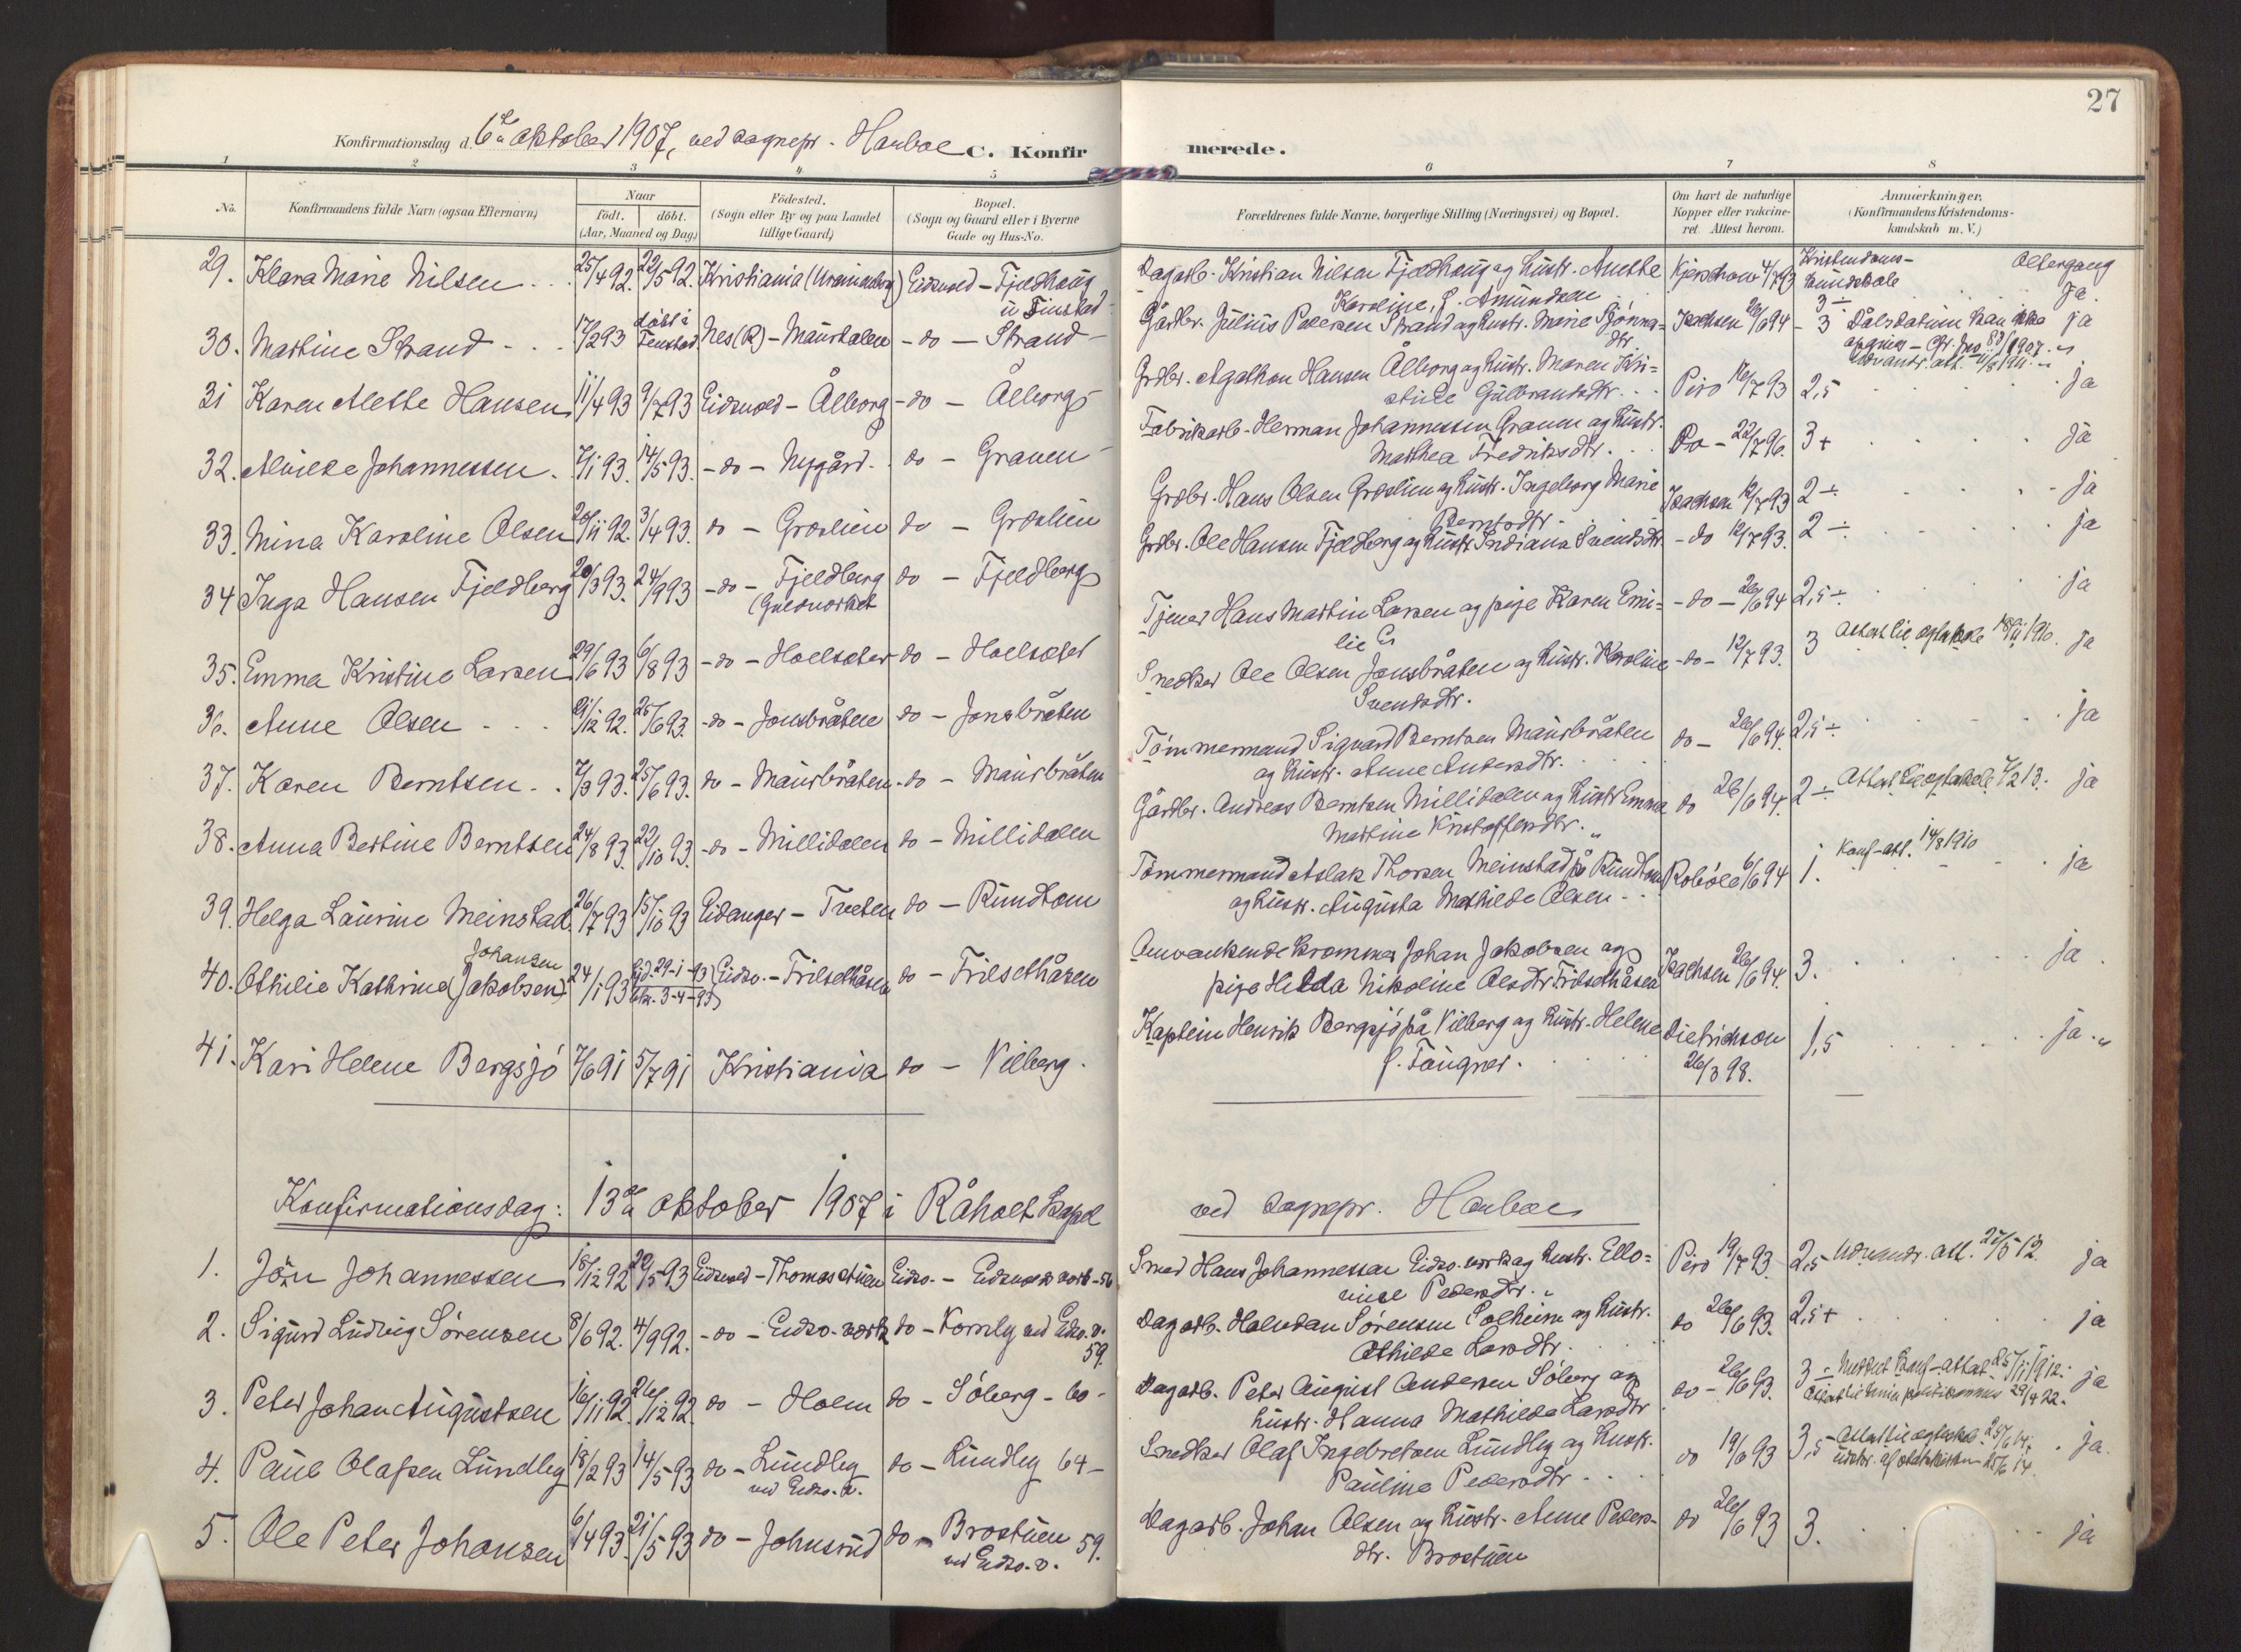 27
Konfirmationsdag d. 6te oktober 1907, ved sognepr. Hauboe C. Konfir
merede.
1 2 3 4 5 6 7 8
No.
Konfirmandens fulde Navn (ogsaa Efternavn)
Naar
födt. döbt.
(Aar, Maaned og Dag)
Födested.
(Sogn eller By og paa Landet
tillige Gaard)
Bopæl.
(Sogn og Gaard eller i Byerne
Gade og Hus-No.
Forældrenes fulde Navne, borgerlige Stilling (Næringsvei) og Bopæl.
Om havt de naturlige
Kopper eller vakcine-
ret. Attest herom.
Anmærkninger.
(Konfirmandens Kristendoms-
kundskab m. V.)
Kristendoms-
kundskab
Altergang
29. Klara Marie Nilsen 25/4 92. 22/5 92. Kristiania (Uranienborg) Eidsvold - Fjeldhaug
u Finstad
Dagarb. Kristian Nilsen Fjeldhaug og hustr. Anette
Karoline, f. Amundsen
Kjerschow 4/7 93 3 ÷ ja.
30. Martine Strand 17/2 93 döbt i
Fenstad Nes (R) - Maurdalen - do - Strand
Gårdbr. Julius Pedersen Strand og hustr. Marie Gjönna=
dtr.
Isachsen 26/6 94 - 3 Dåbsdatum kan ikke ja
opgives - Cfr. Jno 83/1907.
Udvandr. att. 11/8 1911.
31 Karen Alette Hansen 11/4 93 9/7 93 Eidsvold - Ålborg - do - Ålborg
Grdbr. Agathon Hansen Ålborg og hustr. Maren Kri=
stine Gulbrandsdtr.
Piro 16/7 93 2,5 ja
32. Alvilde Johannessen. 7/1 93. 14/5 93. - do - Nygård. do - Graven
Fabrikarb. Herman Johannessen Graven og hustr.
Mathea Fredriksdtr.
Do - 22/7 96. 3+ ja
33. Mina Karoline Olsen 20/11 92. 3/4 93. do - Groslien do - Groslien
Grdbr. Hans Olsen Groslien og hustr. Ingeborg Marie
Berntsdtr.
Isachsen 12/7 93 2 ÷ ja
34 Inga Hansen Fjeldberg 20/3 93. 24/9 93 - do - Fjeldberg do - Fjeldberg
(Guldverket
Grdbr. Ole Hansen Fjeldberg og hustr. Indiana Svendsdtr. - do 12/7 93. 2 ÷ ja
35. Emma Kristine Larsen 29/6 93 6/8 93 - do - Holsæter do - Holsæter
Tjener Hans Martin Larsen og pige Karen Emi=
lie
- do - 26/6 94 2,5 ÷ ja
36. Anne Olsen 21/12 92. 25/6 93. - do - Jonsbråten do - Jonsbråten
Snedker Ole Olsen Jonsbråten og hustr. Karoline
Svendsdtr.
- do - 12/7 93. 3 Attest til ægteskab 18/11 1910. ja
37. Karen Berntsen. 7/3 93. 25/6 93. do - Maursbråten. do - Maursbråten
Tömmermand Sigvard Berntsen Maursbråten
og hustr. Anne Andersdtr.
do - 26/6 94. 2,5 ÷ ja
38. Anna Bertine Berntsen 24/8 93. 22/10 93. - do - Millidalen do - Millidalen
Gårdbr. Andreas Berntsen Millidalen og hustr Emma
Martine Kristoffersdtr.
do 26/6 94. 2 ÷ Attest til ægteskab 7/2 13. ja
39. Helga Laurine Meinstad. 26/7 93 15/10 93 Eidanger - Tveten do - Rundtom
Tömmermand Aslak Thorsen Meinstad på Rundtom
og hustr. Augusta Mathilde Olsen
Roböle 6/6 94 1. Konf-att. 14/8 1910 ja
Johansen
40. Othilie Kathrine (Jakobsen) 24/1 93 Eid. 29-1-93) Eidsv. - Frilsethåsen do - Frilsethåsen
3-4-93)
Omvankende kræmmer Johan Jakobsen og
pige Hilda Nikoline Olsdtr Frilsethåsen
Isachsen 26/6 94. 3. ja.
41. Kari Helene Bergsjö 7/6 91 5/7 91 Kristiania do - Vilberg.
Kaptein Henrik Bergsjö på Vilberg og hustr. Helene
f. Faugner.
Dietrichson
26/3 98.
1,5 ja.
Konfirmationsdag: 13de oktober 1907 i Råholt Kapel
ved sognepr. Hauboe
1. Jörn Johannessen 18/12 92 22/5 93 Eidsvold - Thomasstuen Eidsv. - Eidsvolds værk - 56
Smed Hans Johannessen Eidsv. værk og hustr. Ello=
vine Pedersdtr.
Piro 19/7 93. 2,5 Udvandr. att. 27/5 12. ja
2. Sigurd Ludvig Sörensen 8/6 92. 4/9 92. - do - Eidsv. værk do - Kornly ved Eidsv. v.
59.
Dagarb. Halvdan Sörensen Solheim og hustr.
Othilde Larsdtr.
do 26/6 93. 2,5+ ja
3. Peter Johan Augustsen 16/11 92. 26/12 92. do - Holm do - Söberg - 60 -
Dagarb. Peter August Andersen Söberg og
hustr. Hanna Mathilde Larsdtr
do - 26/6 93. 3 ÷ Meddelt Konf-attest 25/11 1912. ja
29/4 22.
4. Paul Olafsen Lundby 18/2 93 14/5 93 do - Lundby do - Lundby 64 -
ved Eidsv. v.
Snedker Olaf Ingebretsen Lundby og hustr.
Pauline Pedersdtr
do 19/6 93 3,5 Attest til ægteskab 25/6 14. ja.
25/6 14.
5. Ole Peter Johansen 6/4 93. 21/5 93 do - Johnsrud do - Brostuen 59.
ved Eidsv. v.
Dagarb. Johan Olsen og hustr. Anne Peders-
dtr. Brostuen
do 26/6 93 3. ja